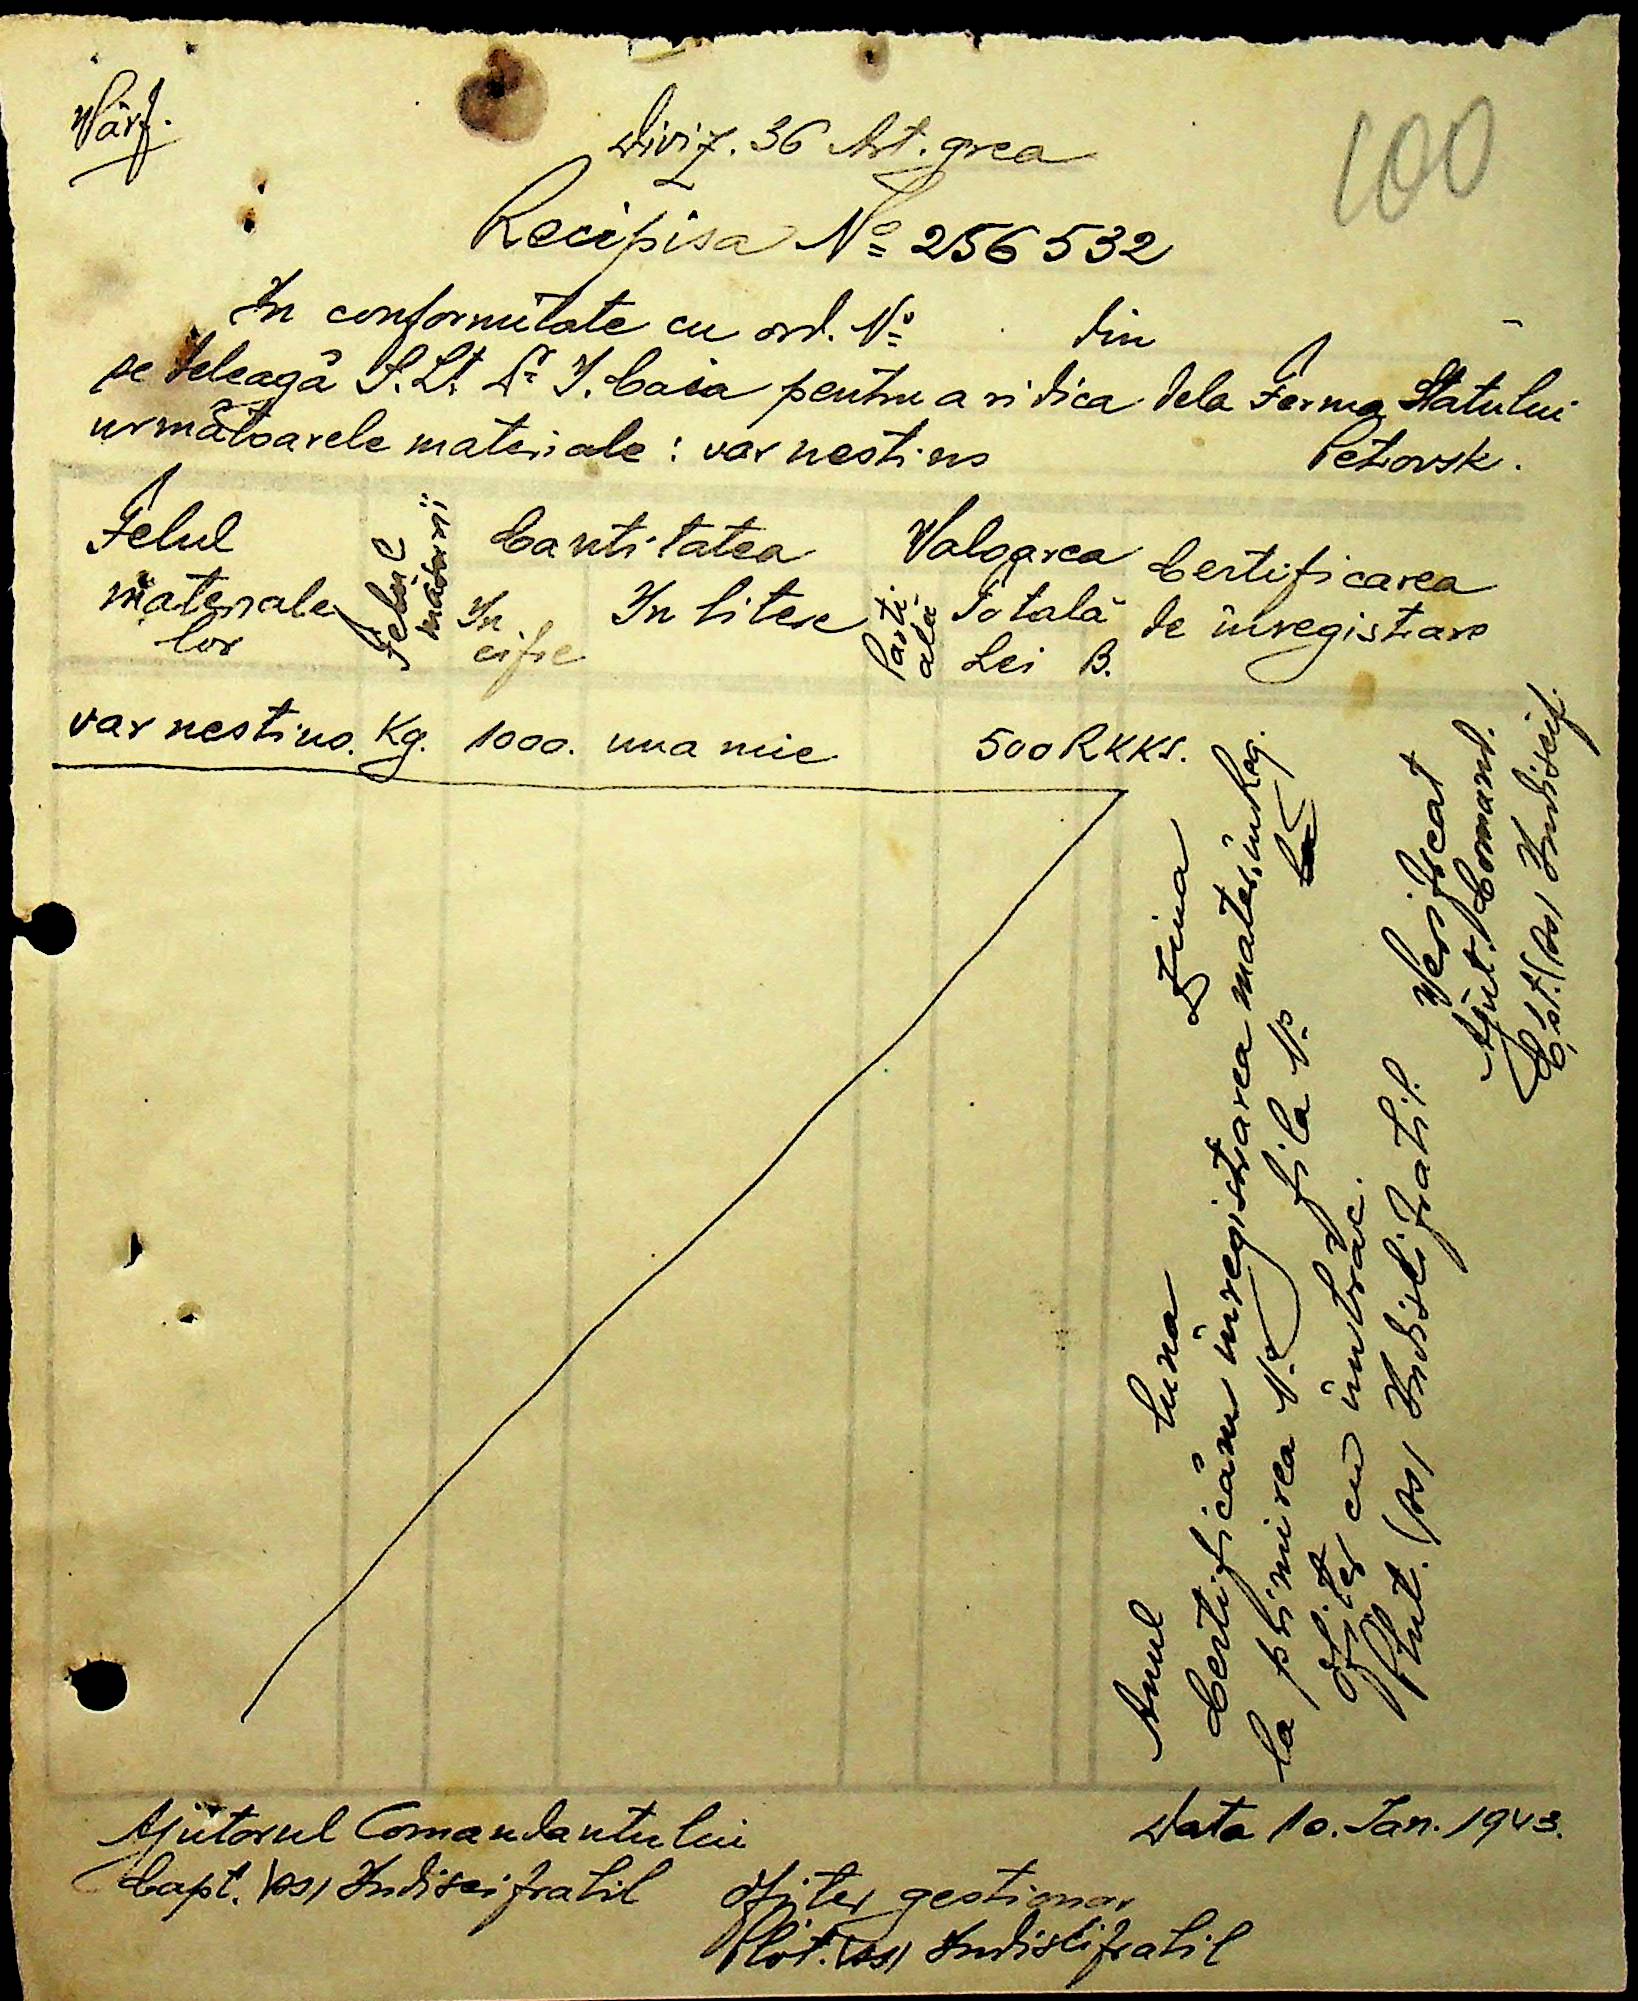 Vârf.
100
Diviz. 36 Art. grea
Recipisa No 256532
In conformitate cu ord. No din
se deleagă S. Lt. Dr I. Caia pentru a ridica dela Ferma Statului
următoarele materiale : var nestins Petrovsk.
Felul materialelor
Felul măsurii
Cantitatea
In cifre
In litere
Valoarea
Parțială
Totală
Lei B.
Certificarea de înregistrare
var nestins. Kg. 1000. una mie 500 RKKS.
Anul luna Ziua
Certificăm înregistrarea mater. în Reg.
la primirea No fila No la
Ofițer cu îmbrac.
Plut. (ss) Indiscifratil.
Verificat
Ajut. Comand.
Cpt. (ss) Indiscif.
Ajutorul Comandantului
Capt. (ss) Indiscifratil
Data 10. Ian. 1943.
Ofițer gestionar
Plot. (ss) Indiscifratil